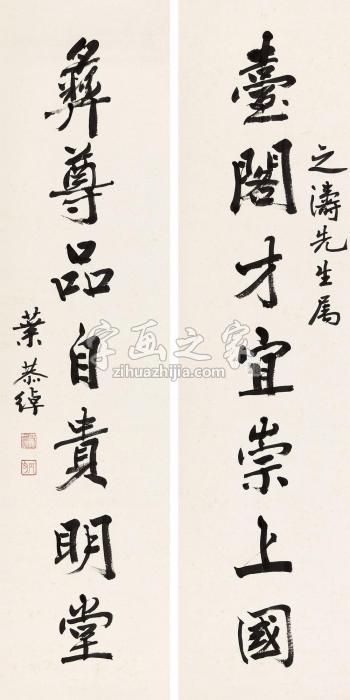 之濤先生属
臺閣才宜崇上國
彝尊品自貴明堂
葉恭绰
字画之家
zihuazhijia.com